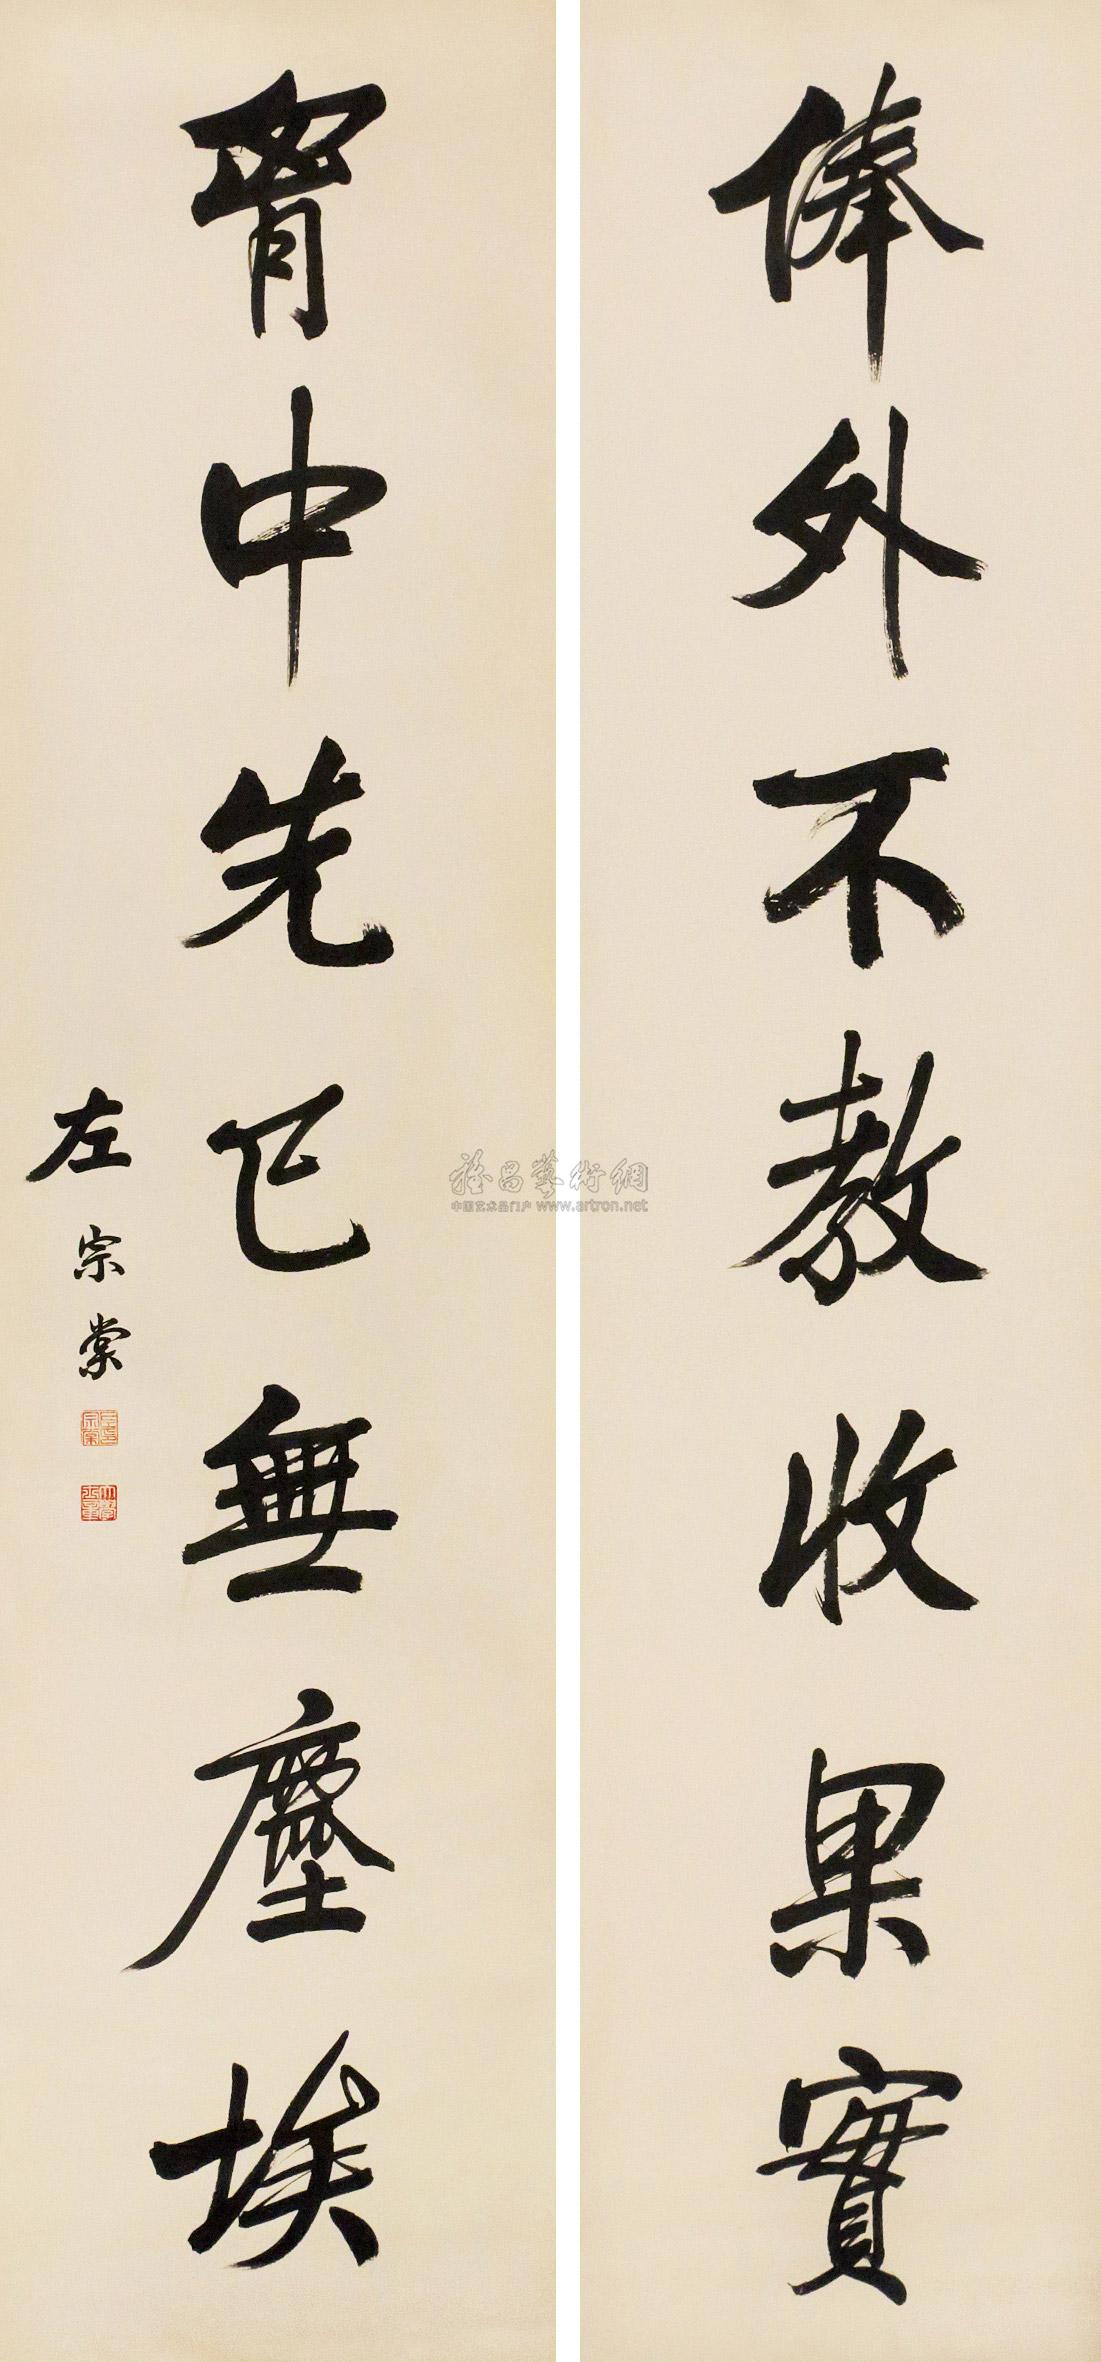 俸外不教收果實
胷中先已無塵埃
左宗棠
雅昌藝術網
中国艺术品门户 www.artron.net